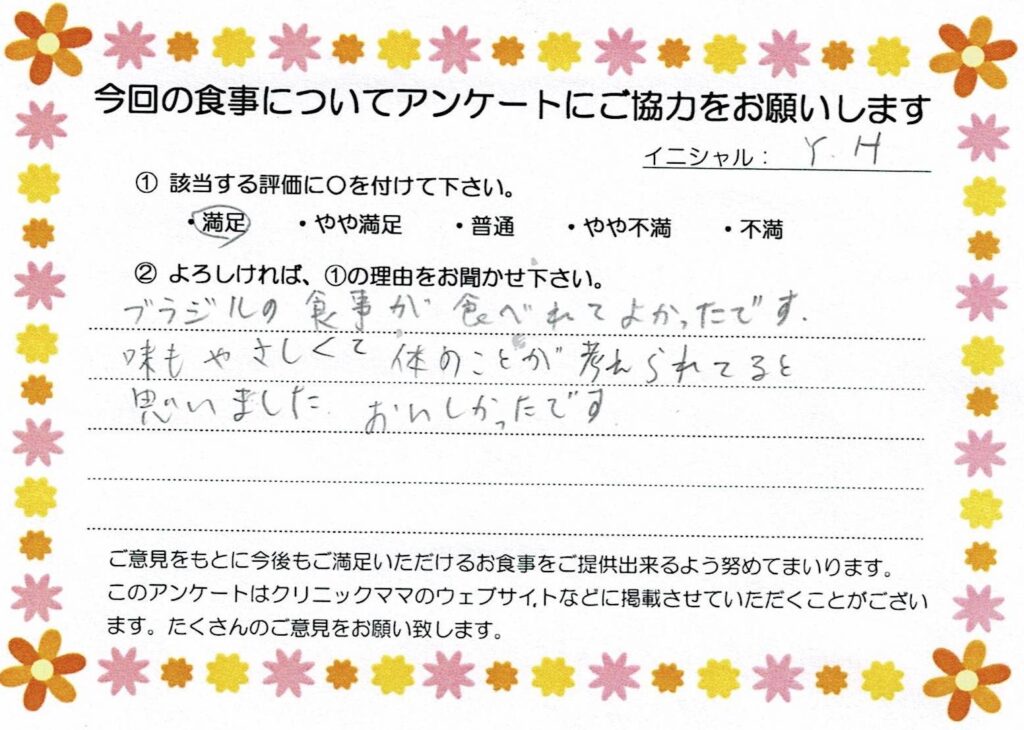 今回の食事についてアンケートにご協力をお願いします
イニシャル: Y.H
① 該当する評価に〇を付けて下さい。
・満足 ・やや満足 ・普通 ・やや不満 ・不満
② よろしければ、①の理由をお聞かせ下さい。
ブラジルの食事が食べれてよかったです.
味もやさしくて体のことが考えられてると
思いました. おいしかったです.
ご意見をもとに今後もご満足いただけるお食事をご提供出来るよう努めてまいります。
このアンケートはクリニックママのウェブサイトなどに掲載させていただくことがござい
ます。たくさんのご意見をお願い致します。